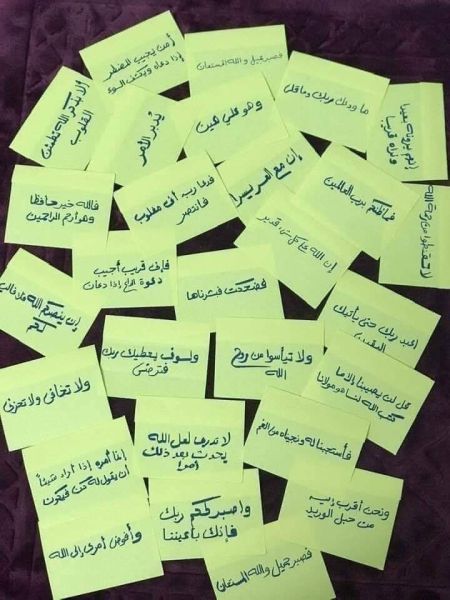 أمن يجيب المضطر
إذا دعاه ويكشف السوء
فصبر جميل والله المستعان
ما ودعك ربك وما قلى
إنهم يرونه بعيدا
ونراه قريبا
ألا بذكر الله تطمئن
القلوب
يدبر الأمر
وهو علي هين
إن مع العسر يسرا
فما ظنكم برب العالمين
لا تقنطوا من رحمة الله
فالله خير حافظا
وهو أرحم الراحمين
فدعا ربه أني مغلوب
فانتصر
إن الله على كل شيء قدير
إن ينصركم الله فلا غالب
لكم
فإني قريب أجيب
دعوة الداع إذا دعان
فضحكت فبشرناها
اعبد ربك حتى يأتيك
اليقين
ولا تخافي ولا تحزني
ولسوف يعطيك ربك
فترضى
ولا تيأسوا من روح
الله
قل لن يصيبنا إلا ما
كتب الله لنا هو مولانا
إنما أمره إذا أراد شيئاً
أن يقول له كن فيكون
لا تدري لعل الله
يحدث بعد ذلك
أمرا
فاستجبنا له ونجيناه من الغم
واصبر لحكم ربك
فإنك بأعيننا
ونحن أقرب إليه
من حبل الوريد
وأفوض أمري إلى الله
فصبر جميل والله المستعان